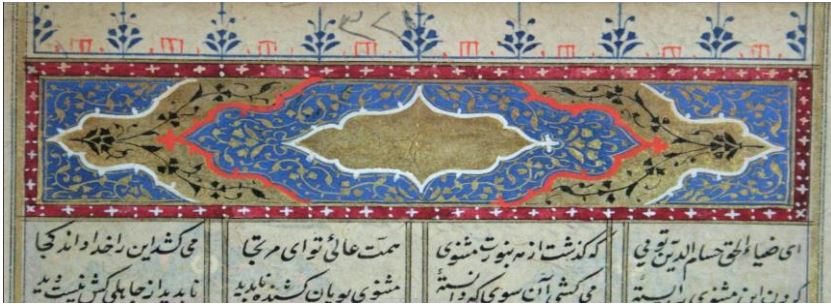 ای ضیاء الحق حسام الدین تویی که گذشت از مه بنورت مثنوی
همت عالی تو ای مرتجا می کشد این را خدا داند کجا
گردن این مثنوی را بستهٔ می کشی آن سوی که دانستهٔ
مثنوی پویان کشنده ناپدید ناپدید از جاهلی کش نیست دید